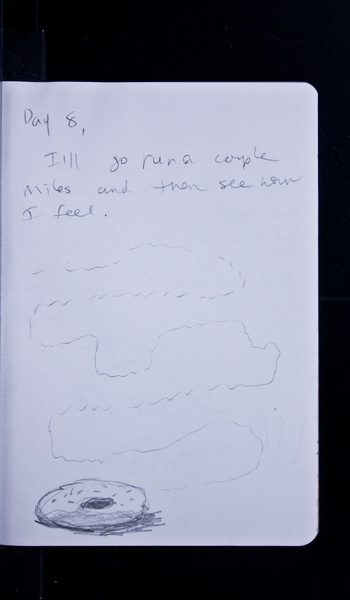 Day 8,
I'll go run a couple
miles and then see how
I feel.